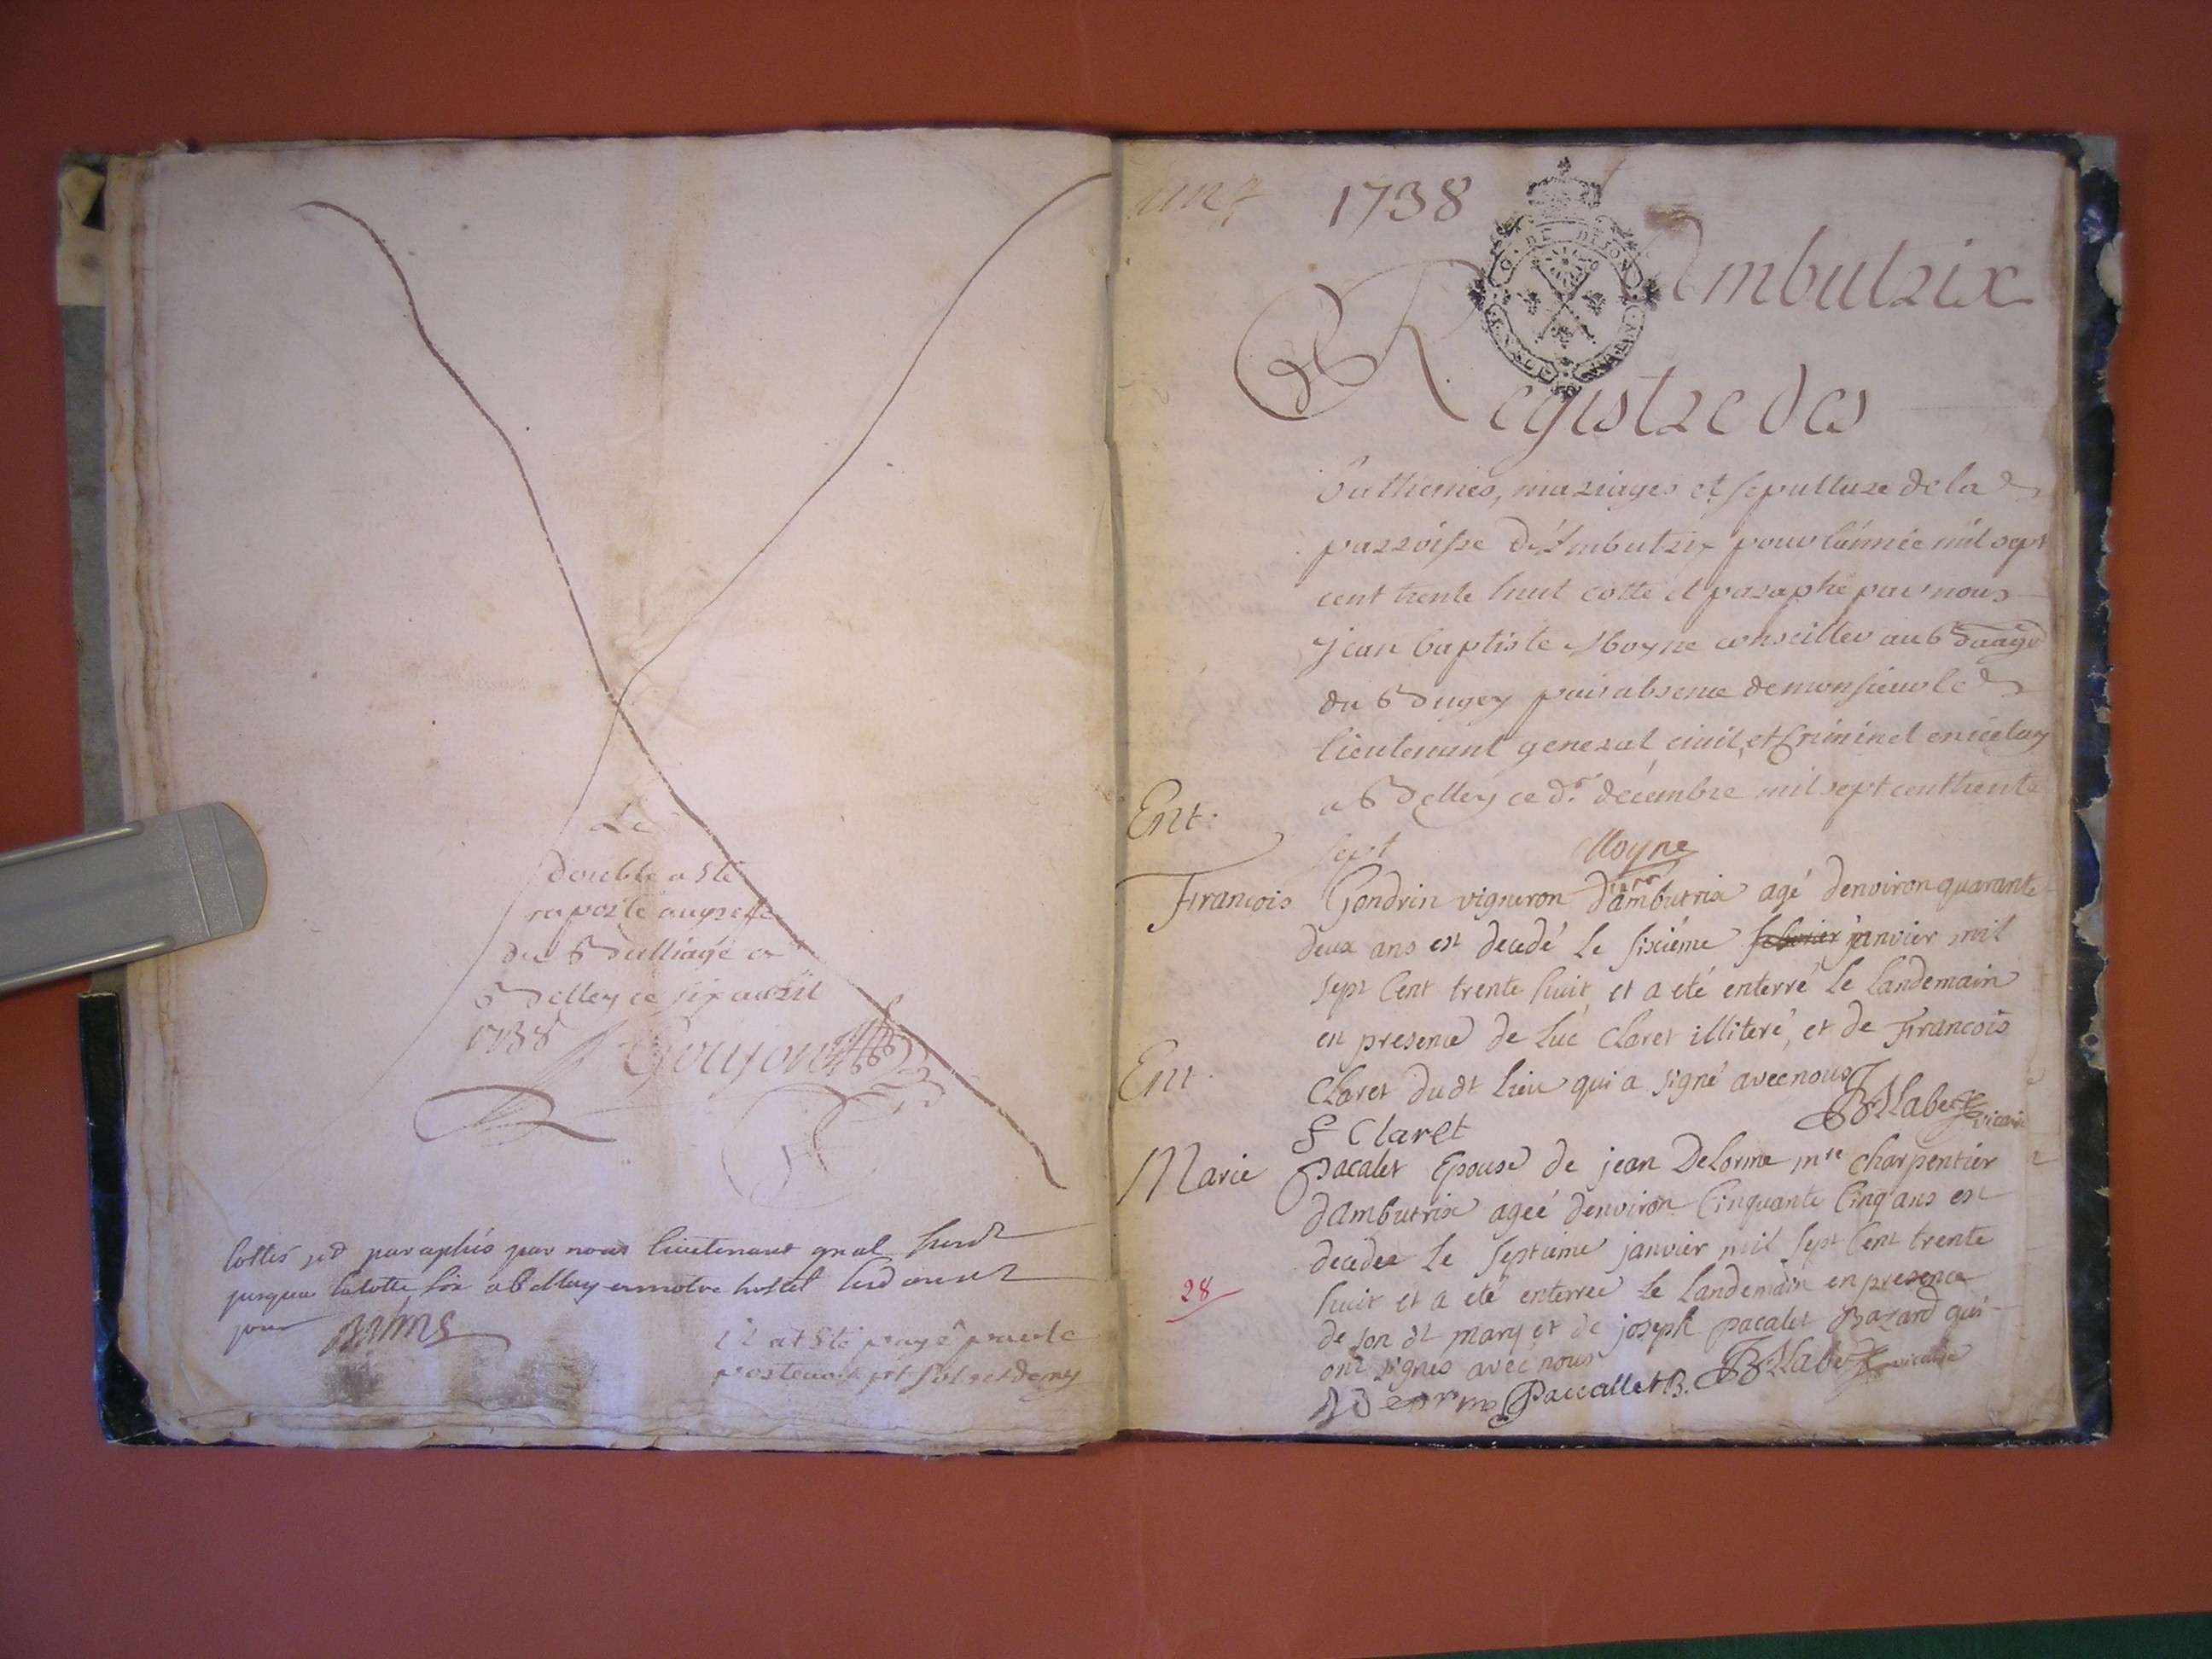 Le
double a esté
raporté au greffe
du Bailliage de
Belley ce six avril
1738
Goujon
Cottés et paraphés par nous lieutenant gnal
jusques
il at esté payé par le
1738
Ambutrix
Registre des
bathemes, mariages et sepulture de la
parroisse d'Ambutrix pour l'année mil sept
cent trente huit cotte et paraphé par nous
jean baptiste Moyne conseiller au Baage
du Bugey par absence de monsieur le
lieutenant general, civil, et criminel en iceluy
a Belley ce dr. décembre mil sept cent trente
sept
Moyne
Ent.
François Gondrin vigneron d'ambutrix agé denviron quarante
deux ans est decedé le sixiéme janvier mil
sept cent trente huit et a eté enterré le landemain
en presence de Luc Claret illiteré, et de François
Claret dudt lieu qui a signé avec nous
F Claret
vicaire
Ent.
Marie Pacalet Epouse de jean Delorme mre charpentier
dambutrix ageé denviron cinquante cinq ans est
decedeé le septieme janvier mil sept cent trente
28
huit et a eté enterreé le landemain en presence
de son dt mary et de joseph pacalet Bazard qui
ont signés avec nous
Paccallet B. vicaire